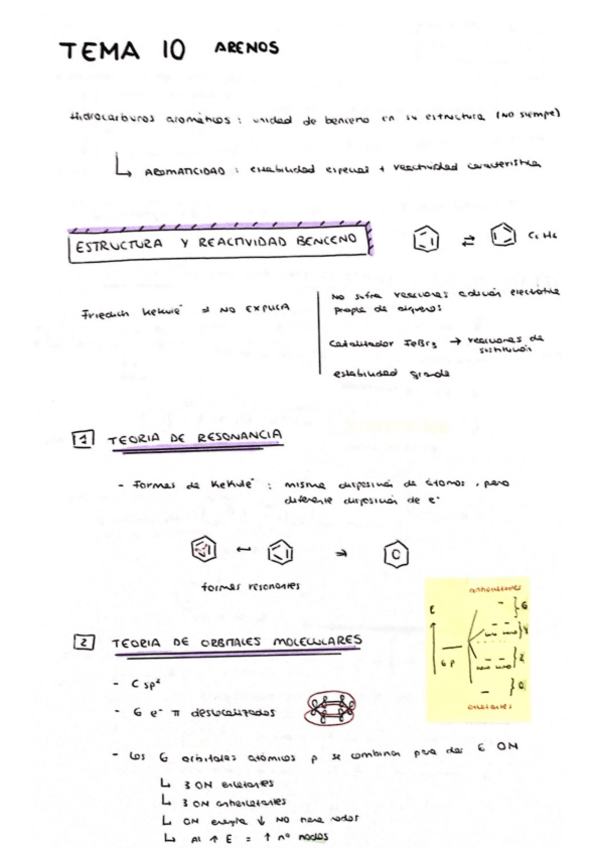 TEMA 10 ARENOS
Hidrocarburos aromáticos : unidad de benceno en su estructura (no siempre)
AROMATICIDAD : estabilidad especial + reactividad característica
ESTRUCTURA Y REACTIVIDAD BENCENO
C6H6
Friedich Kekulé ⇒ NO EXPLICA
No sufre reacciones adición electrófila
propia de alquenos
Catalizador FeBr3 → reacciones de
sustitución
estabilidad grande
1 TEORIA DE RESONANCIA
- Formas de Kekulé : misma disposición de átomos , pero
diferente disposición de e-
formas resonantes
2 TEORIA DE ORBITALES MOLECULARES
antienlazantes
E
6
4
6 p
2
0
enlazantes
- C sp2
- 6 e- π deslocalizados
- Los 6 orbitales atómicos p se combinan para dar 6 OM
3 OM enlazantes
3 OM antienlazantes
OM energía ↓ NO tiene nodos
Al ↑ E = ↑ nº nodos